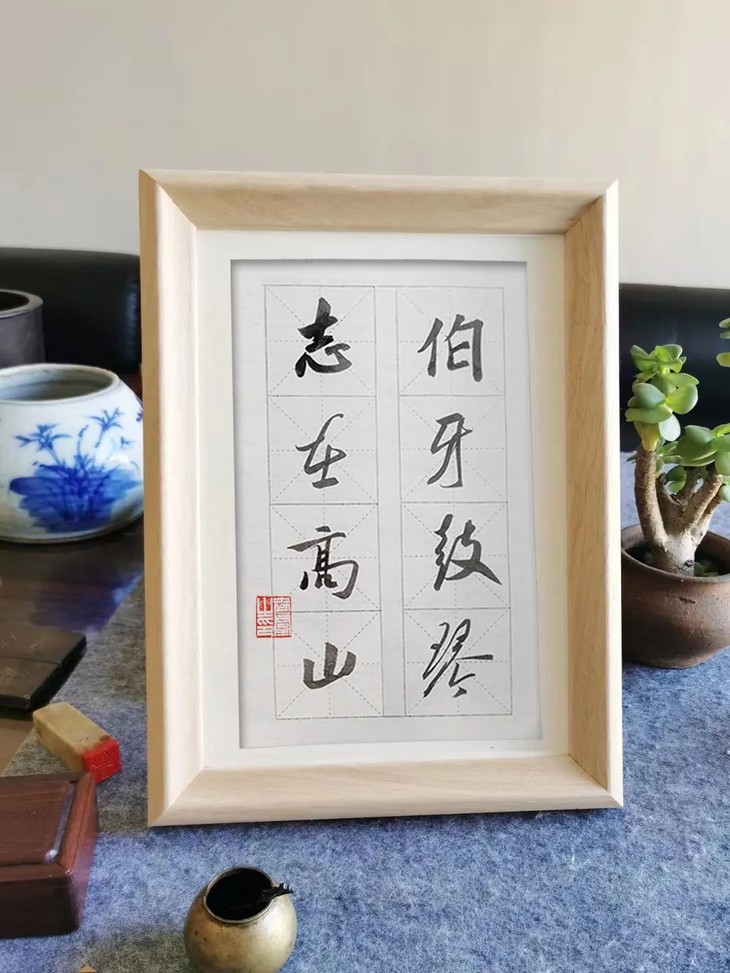 伯牙鼓琴
志在高山